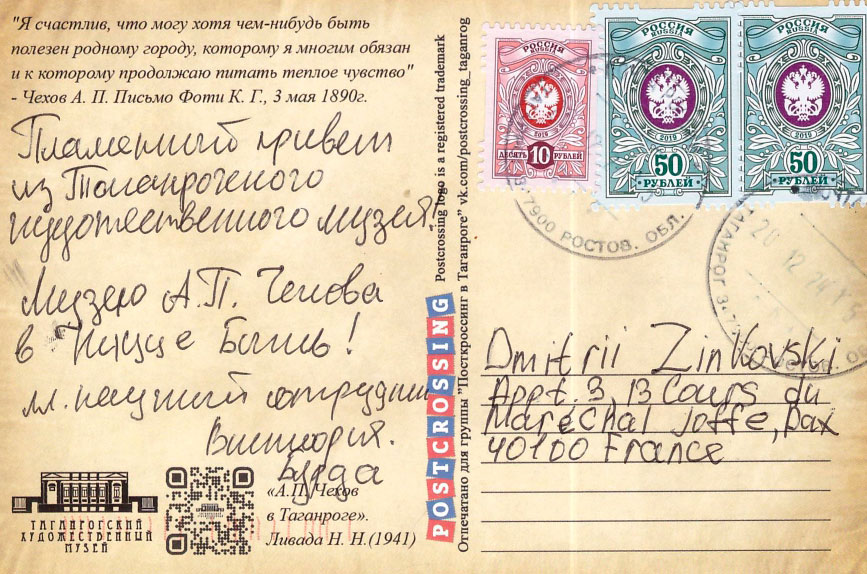 "Я счастлив, что могу хотя чем-нибудь быть
полезен родному городу, которому я многим обязан
и к которому продолжаю питать теплое чувство"
- Чехов А. П. Письмо Фоти К. Г., 3 мая 1890г.
Пламенный привет
из Таганрогского
художественного музея!
Музею А.П. Чехова
в Ницце Быть!
мл. научный сотрудник
Виктория
Бурда
ТАГАНРОГСКИЙ
ХУДОЖЕСТВЕННЫЙ
МУЗЕЙ
«А.П. Чехов
в Таганроге».
Ливада Н. Н.(1941)
POSTCROSSING
Postcrossing logo is a registered trademark
Отпечатано для группы "Посткроссинг в Таганроге" vk.com/postcrossing_taganrog
РОССИЯ
RUSSIA
2019
ДЕСЯТЬ 10 РУБЛЕЙ
РОССИЯ
RUSSIA
2019
50
РУБЛЕЙ
РОССИЯ
RUSSIA
2019
50
РУБЛЕЙ
РОСТОВ. ОБЛ.
ТАГАНРОГ
20 12 24
Dmitrii Zinkovski
Appt. 3, 13 Cours du
Maréchal Joffe, Dax
40100 France